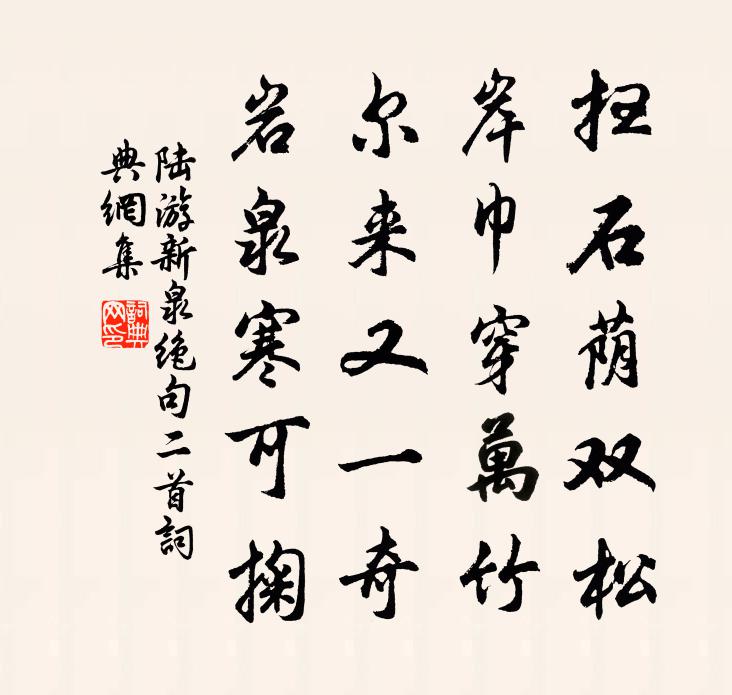 扫石荫双松
岸巾穿萬竹
尔来又一奇
岩泉寒可掬
陆游新泉绝句二首詞
典網集
詞典
网印